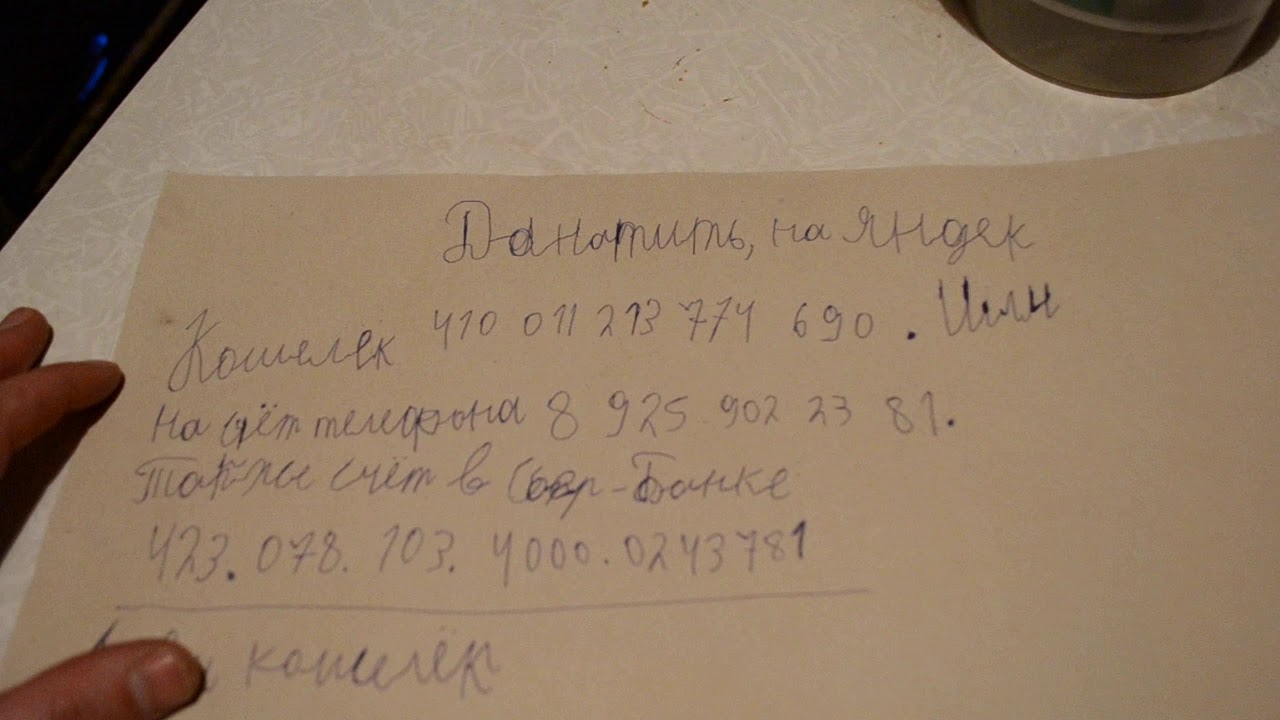 Данатить, на яндек
Кошелек 410 011 213 774 690 . Или
на счёт телефона 8 925 902 23 81.
Также счёт в Сбер-Банке
423. 078. 103. 4000. 0243781
кошелёк